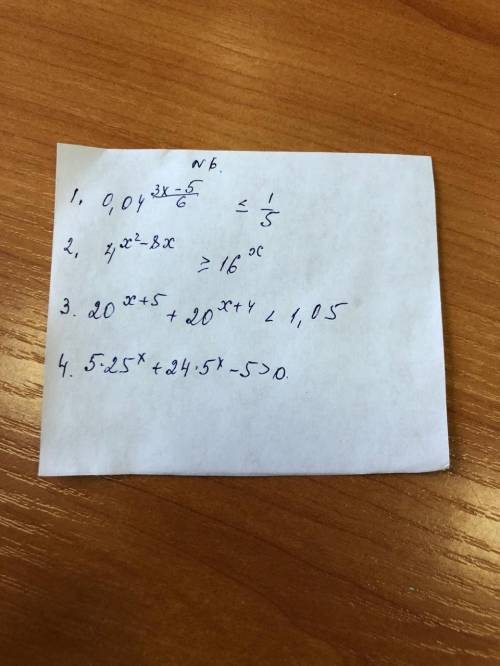 №6.
1. 0,04^((3x-5)/6) ≤ 1/5
2. 4^(x²-8x) ≥ 16^x
3. 20^(x+5) + 20^(x+4) < 1,05
4. 5·25^x + 24·5^x - 5 > 0.